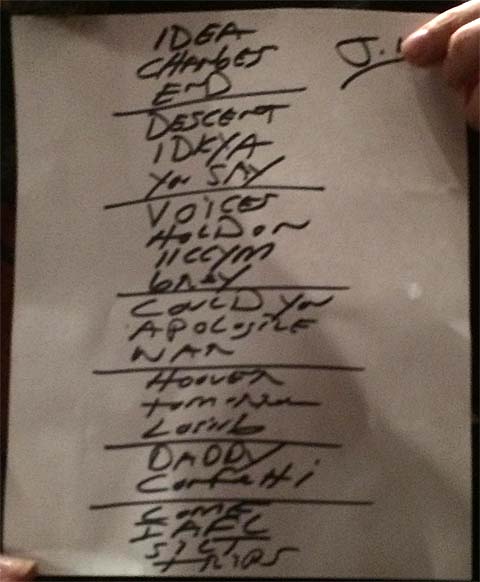 IDEA
J.
CHANGES
END
DESCENT
IDKYA
YOU SAY
VOICES
HOLD ON
IICCYM
GREY
COULD YOU
APOLOGIZE
WAR
HOOVER
TOMORROW
LOSING
DADDY
CONFETTI
COME
IAFL
SILT
TRIPS